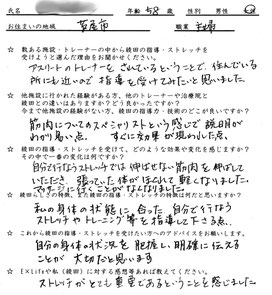 氏名 年齢 58 歳 性別 男性
お住まいの地域 芦屋市 職業 主婦
☆ 数ある施設・トレーナーの中から綾田の指導・ストレッチを
受けようと選んだ理由をお聞かせください。
アスリートのトレーナーをされているということで、住んでいる
所にも近いので指導を受けてみたいと思いました
☆ 他施設に行かれた経験がある方、他のトレーナーや治療院と
綾田との違いはありますか?どう良かったですか?
今まで他施設経験がない方、綾田の指導力・技術のどこが良いですか?
筋肉についてのスペシャリストという感じで説明が
わかり易い点。すぐに効果が現われた点。
☆ 綾田の指導・ストレッチを受けて、どのような効果や変化を感じますか?
その中で一番の変化は何ですか?
自分で行なうストレッチでは伸ばせない筋肉を伸ばして
いただき、張っていた体がほぐれて軽くなりました。
マッサージに行くことがなくなりました
☆ 綾田らしさの特徴、また綾田の指導の特徴は何だと思いますか?
私の身体の状態に合った自分で行なう
ストレッチやトレーニング等を指導して下さる点。
☆ これから綾田の指導・ストレッチを受けたい方へのアドバイスをお願いします。
自分の身体の状況を把握し明確に伝える
ことが大切だと思います
☆ 【×Lifeや私(綾田)に対する感想等あれば教えてください。
ストレッチがとても重要であるということを感じました